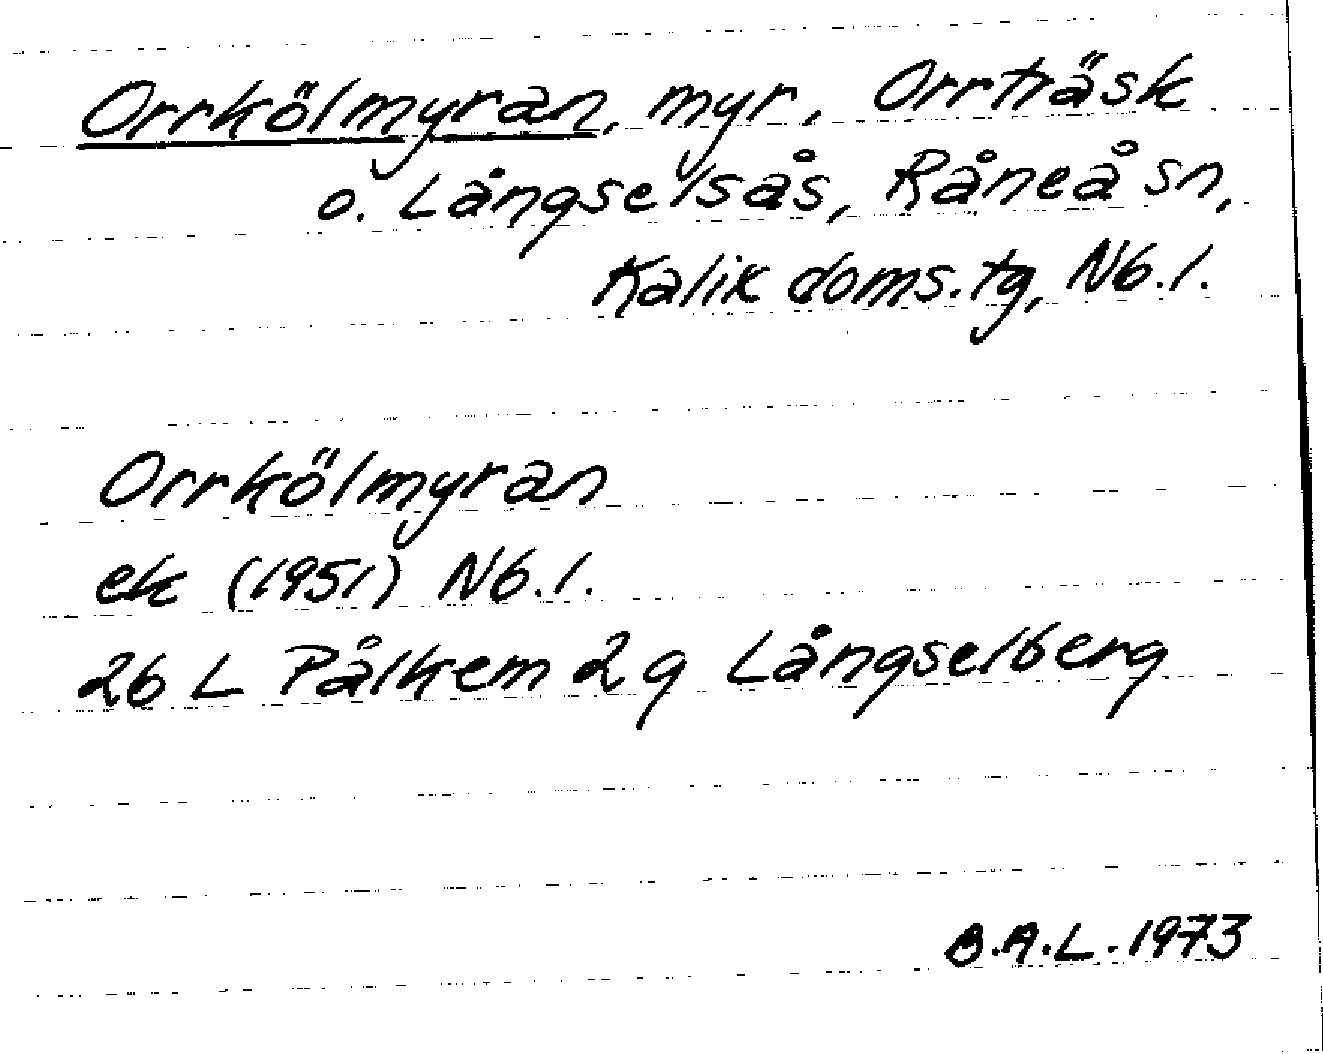 Orrkölmyran, myr, Orrträsk
o. Långselsås, Råneå sn,
Kalix doms.tg, Nb.l.
Orrkölmyran
ek (1951) Nb.l.
26 L Pålkem 2g Långselberg
B.A.L. 1973